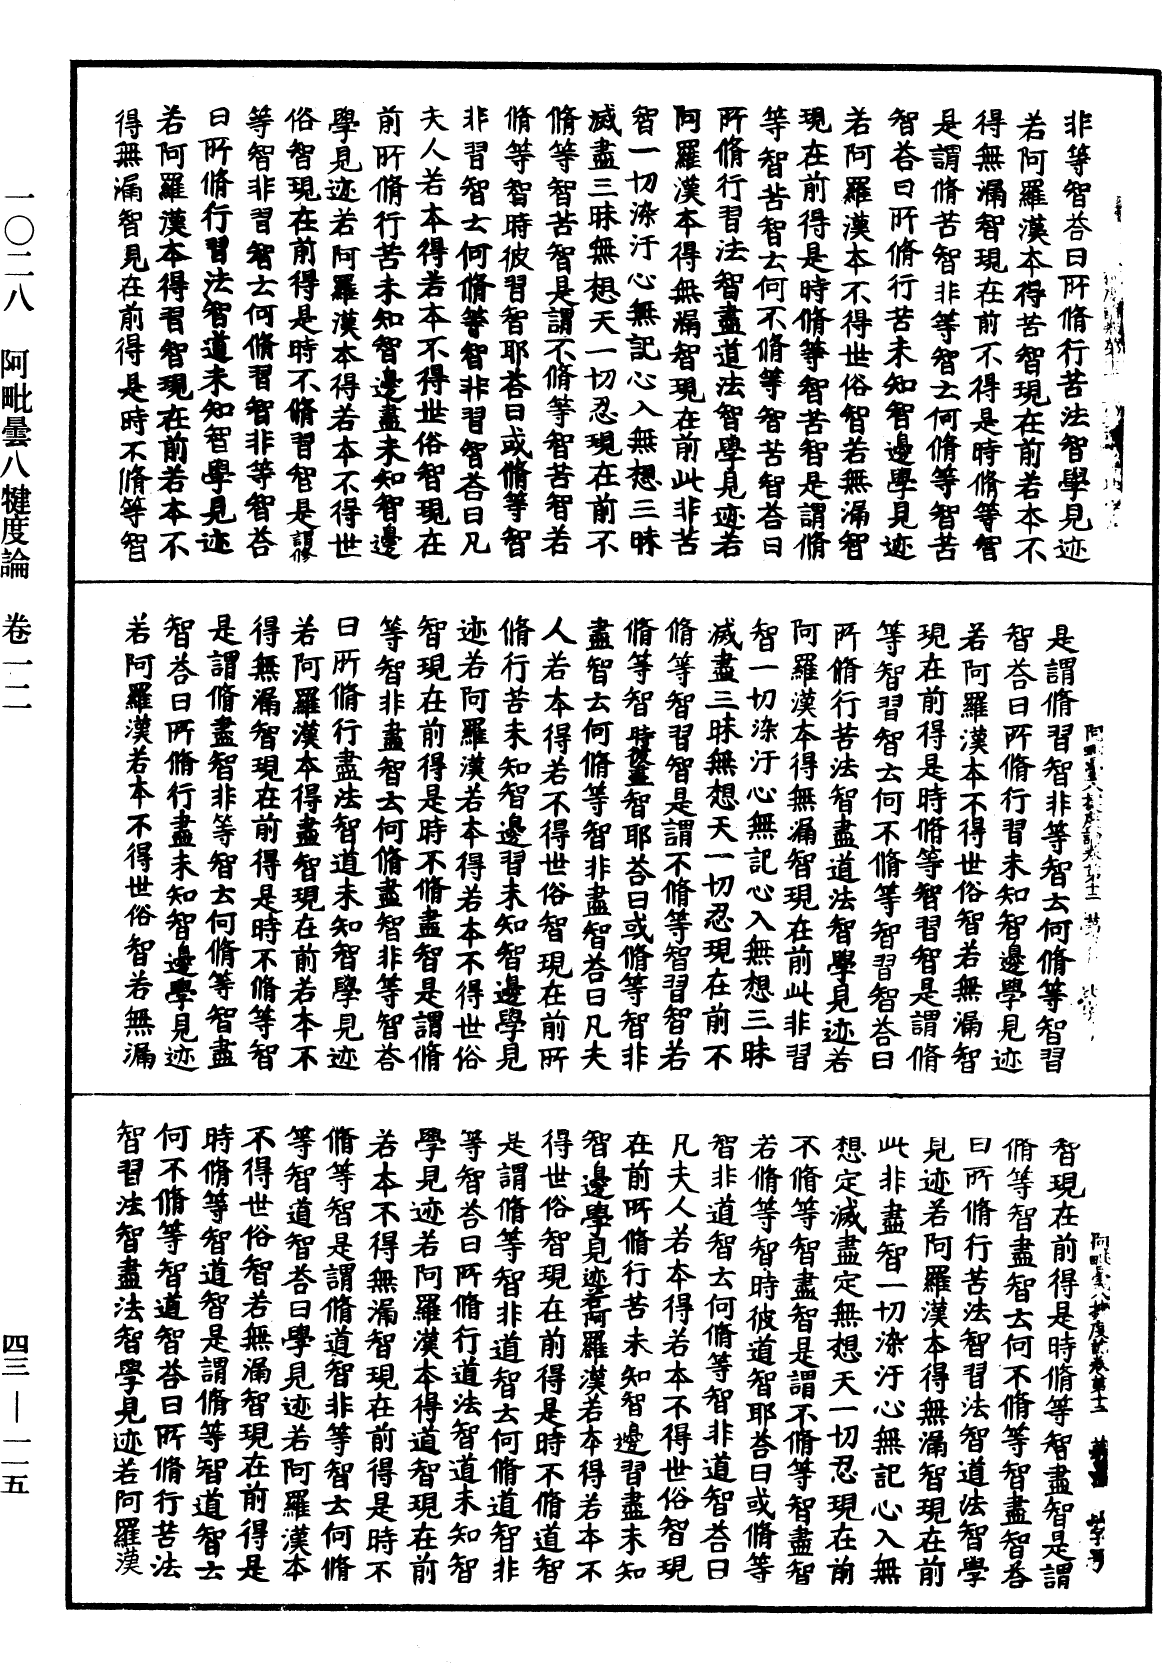 一〇二八　阿毗曇八犍度論　卷一二
四三—一一五
非等智荅曰所脩行苦法智學見迹
若阿羅漢本得苦智現在前若本不
得無漏智現在前不得是時脩等智
是謂脩苦智非等智云何脩等智苦
智荅曰所脩行苦未知智邊學見迹
若阿羅漢本不得世俗智若無漏智
現在前得是時脩等智苦智是謂脩
等智苦智云何不脩等智苦智荅曰
所脩行習法智盡道法智學見迹若
阿羅漢本得無漏智現在前此非苦
智一切染汙心無記心入無想三昧
滅盡三昧無想天一切忍現在前不
脩等智苦智是謂不脩等智苦智若
脩等智時彼習智耶荅曰或脩等智
非習智云何脩等智非習智荅曰凡
夫人若本得若本不得世俗智現在
前所脩行苦未知智邊盡未知智邊
學見迹若阿羅漢本得若本不得世
俗智現在前得是時不脩習智是謂修
等智非習智云何脩習智非等智荅
曰所脩行習法智道未知智學見迹
若阿羅漢本得習智現在前若本不
得無漏智見在前得是時不脩等智
是謂脩習智非等智云何脩等智習
智荅曰所脩行習未知智邊學見迹
若阿羅漢本不得世俗智若無漏智
現在前得是時脩等智習智是謂脩
等智習智云何不脩等智習智荅曰
所脩行苦法智盡道法智學見迹若
阿羅漢本得無漏智現在前此非習
智一切染汙心無記心入無想三昧
滅盡三昧無想天一切忍現在前不
脩等智習智是謂不脩等智習智若
脩等智時彼盡智耶荅曰或脩等智非
盡智云何脩等智非盡智荅曰凡夫
人若本得若不得世俗智現在前所
脩行苦未知智邊習未知智邊學見
迹若阿羅漢若本得若本不得世俗
智現在前得是時不脩盡智是謂脩
等智非盡智云何脩盡智非等智荅
曰所脩行盡法智道未知智學見迹
若阿羅漢本得盡智現在前若本不
得無漏智現在前得是時不脩等智
是謂脩盡智非等智云何脩等智盡
智荅曰所脩行盡未知智邊學見迹
若阿羅漢若本不得世俗智若無漏
智現在前得是時脩等智盡智是謂
脩等智盡智云何不脩等智盡智荅
曰所脩行苦法智習法智道法智學
見迹若阿羅漢本得無漏智現在前
此非盡智一切染汙心無記心入無
想定滅盡定無想天一切忍現在前
不脩等智盡智是謂不脩等智盡智
若脩等智時彼道智耶荅曰或脩等
智非道智云何脩等智非道智荅曰
凡夫人若本得若本不得世俗智現
在前所脩行苦未知智邊習盡未知
智邊學見迹若阿羅漢若本得若本不
得世俗智現在前得是時不脩道智
是謂脩等智非道智云何脩道智非
等智荅曰所脩行道法智道未知智
學見迹若阿羅漢本得道智現在前
若本不得無漏智現在前得是時不
脩等智是謂脩道智非等智云何脩
等智道智荅曰學見迹若阿羅漢本
不得世俗智若無漏智現在前得是
時脩等智道智是謂脩等智道智云
何不脩等智道智荅曰所脩行苦法
智習法智盡法智學見迹若阿羅漢